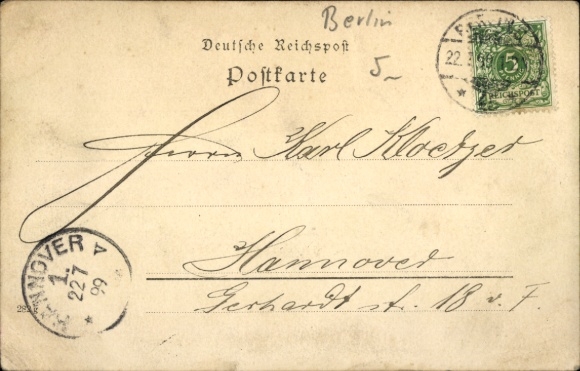 Berlin
Deutsche Reichspost
Postkarte
5 –
BERLIN
22.
5
REICHSPOST
Herrn Karl Kloetzer
Hannover
Gerhardt st. 18 v. F.
HANNOVER
1.
22 7
99